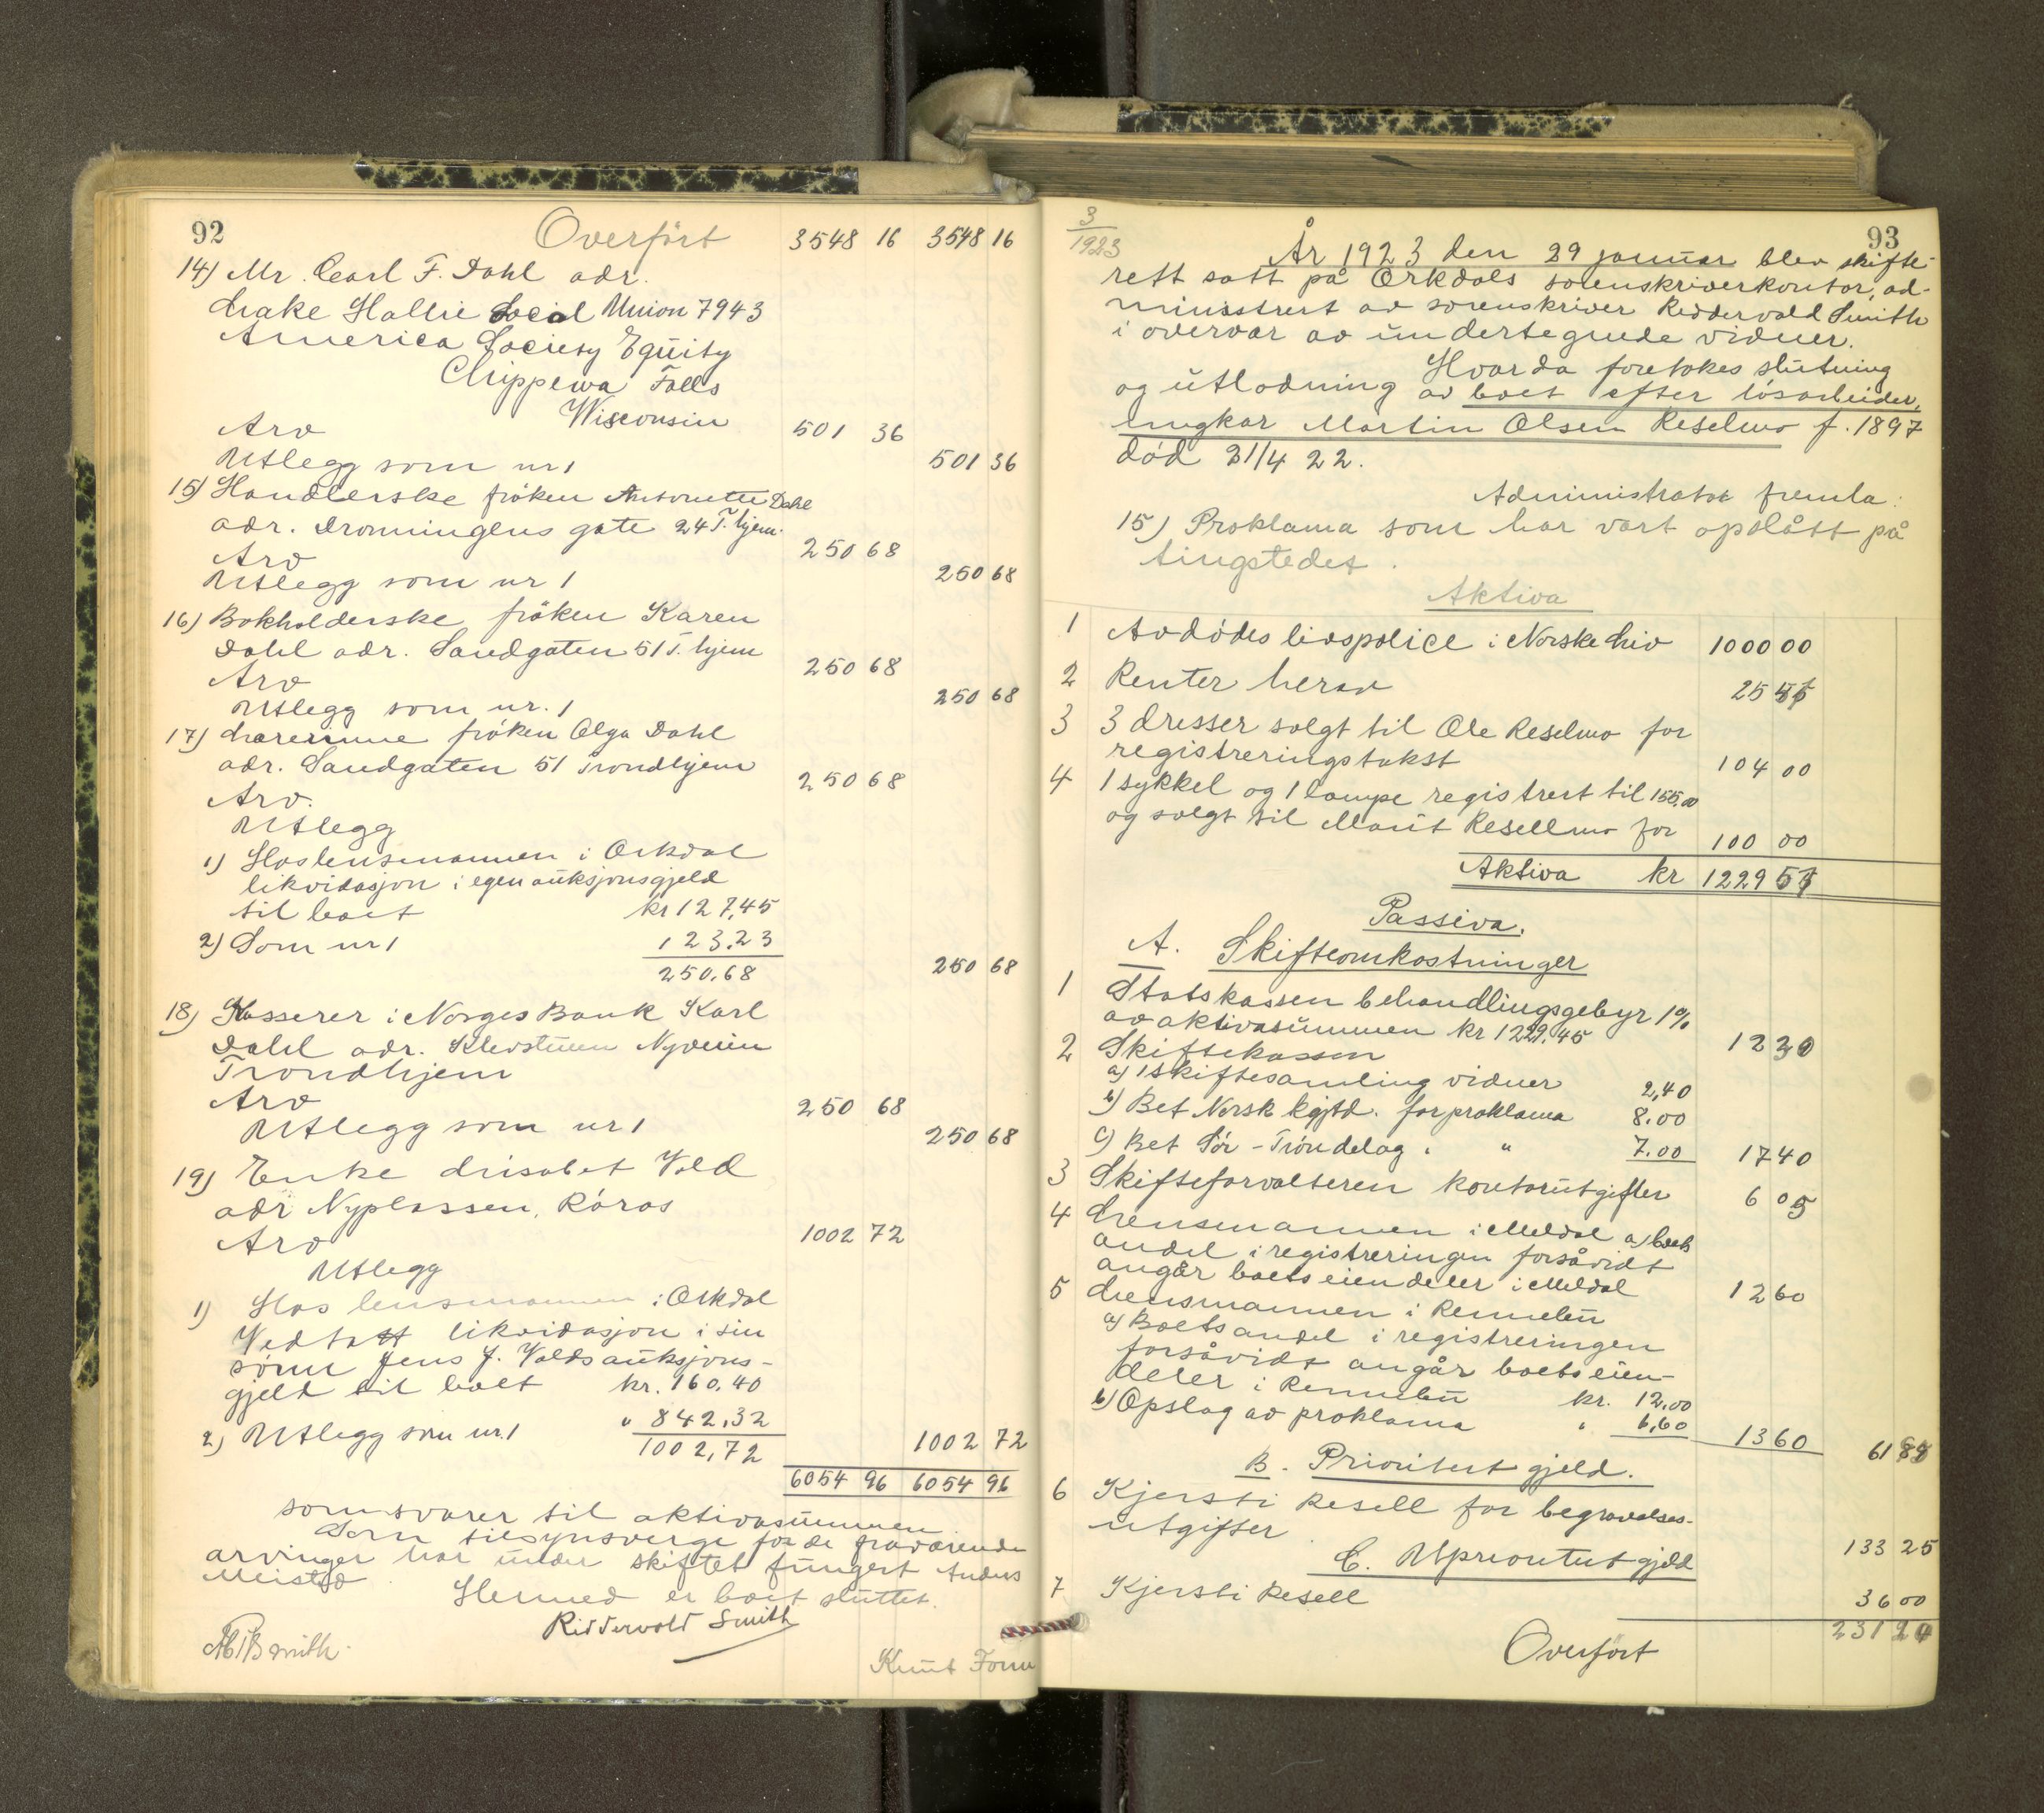 92
Overført 3548 16 3548 16
14) Mr. Carl F. Dahl adr.
Lake Hallie Local Union 7943
America Society Equity
Chippewa Falls
Wisconsin
Arv 501 36
Utlegg som nr 1 501 36
15) Handlerske frøken Antonette Dahl
adr. Dronningens gate 24 T.hjem.
Arv 250 68
Utlegg som nr 1 250 68
16) Bokholderske frøken Karen
Dahl adr. Sandgaten 51 T.hjem
Arv 250 68
Utlegg som nr. 1 250 68
17) Lærerinne frøken Olga Dahl
adr. Sandgaten 51 Trondhjem
Arv. 250 68
Utlegg
1) Hos lensmannen i Orkdal
likvidasjon i egen auksjonsgjeld
til boet kr 127,45
2) Som nr 1 123.23
250.68 250 68
18) Kasserer i Norges Bank Karl
Dahl adr. Nyveien
Trondhjem
Arv 250 68
Utlegg som nr 1 250 68
19) Enke Lisabet Vold
adr Nyplassen, Røros
Arv 1002 72
Utlegg
1) Hos lensmannen i Orkdal
Vedtatt likvidasjon i sin
sønn Jens J. Volds auksjons-
gjeld til boet kr. 160.40
2) Utlegg som nr. 1 " 842,32
1002,72 1002 72
6054 96 6054 96
som svarer til aktivasummen
Som tilsynsverge for de fraværende
arvinger har under skiftet fungert Anders
Meistad
Hermed er boet sluttet.
Riddervold Smith
Knut
3/1923
93
År 1923 den 29 januar blev skifte-
rett satt på Orkdals sorenskriverkontor, ad-
ministrert av sorenskriver Riddervold Smith
i overvær av undertegnede vidner.
Hvorda foretokes slutning
og utlodning av boet efter løsarbeider,
ungkar Martin Olsen Reselmo f. 1897
død 21/4 22.
Administrator fremla:
15) Proklama som har vært opslått på
tingstedet.
Aktiva
1 Avdødes livspolice i Norske Liv 1000 00
2 Renter herav 25
3 3 dresser solgt til Ole Reselmo for
registreringstakst 104 00
4 1 sykkel og 1 lampe registrert til 155,00
og solgt til Marit Resellmo for 100 00
Aktiva kr 1229
Passiva.
A. Skifteomkostninger
1 Statskassen behandlingsgebyr 1%
av aktivasummen kr 1229,45 12 30
2 Skiftekassen
a) 1 skiftesamling vidner 2,40
b) Bet Norsk kgjtd. for proklama 8.00
c) Bet Sør-Trøndelag " " 7.00 17 40
3 Skifteforvalteren kontorutgifter 6 05
4 Lensmannen i Meldal a) boets
andel i registreringen forsåvidt
angår boets eiendeler i Meldal 12 60
5 Lensmannen i Rennebu
a) Boets andel i registreringen
forsåvidt angår boets eien-
deler i Rennebu kr. 12.00
b) Opslag av proklama " 6,60 13 60 61
B. Prioritert gjeld.
6 Kjersti Resell for begravelses-
utgifter 133 25
C. Uprioritert gjeld
7 Kjersti Resell 36 00
Overført 231